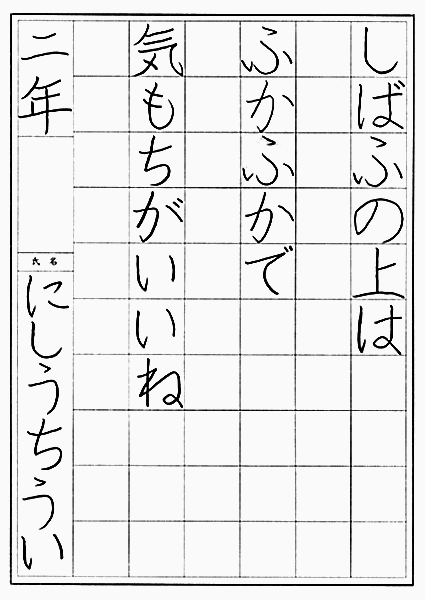 しばふの上は
ふかふかで
気もちがいいね
二年
氏名
にしうちうい